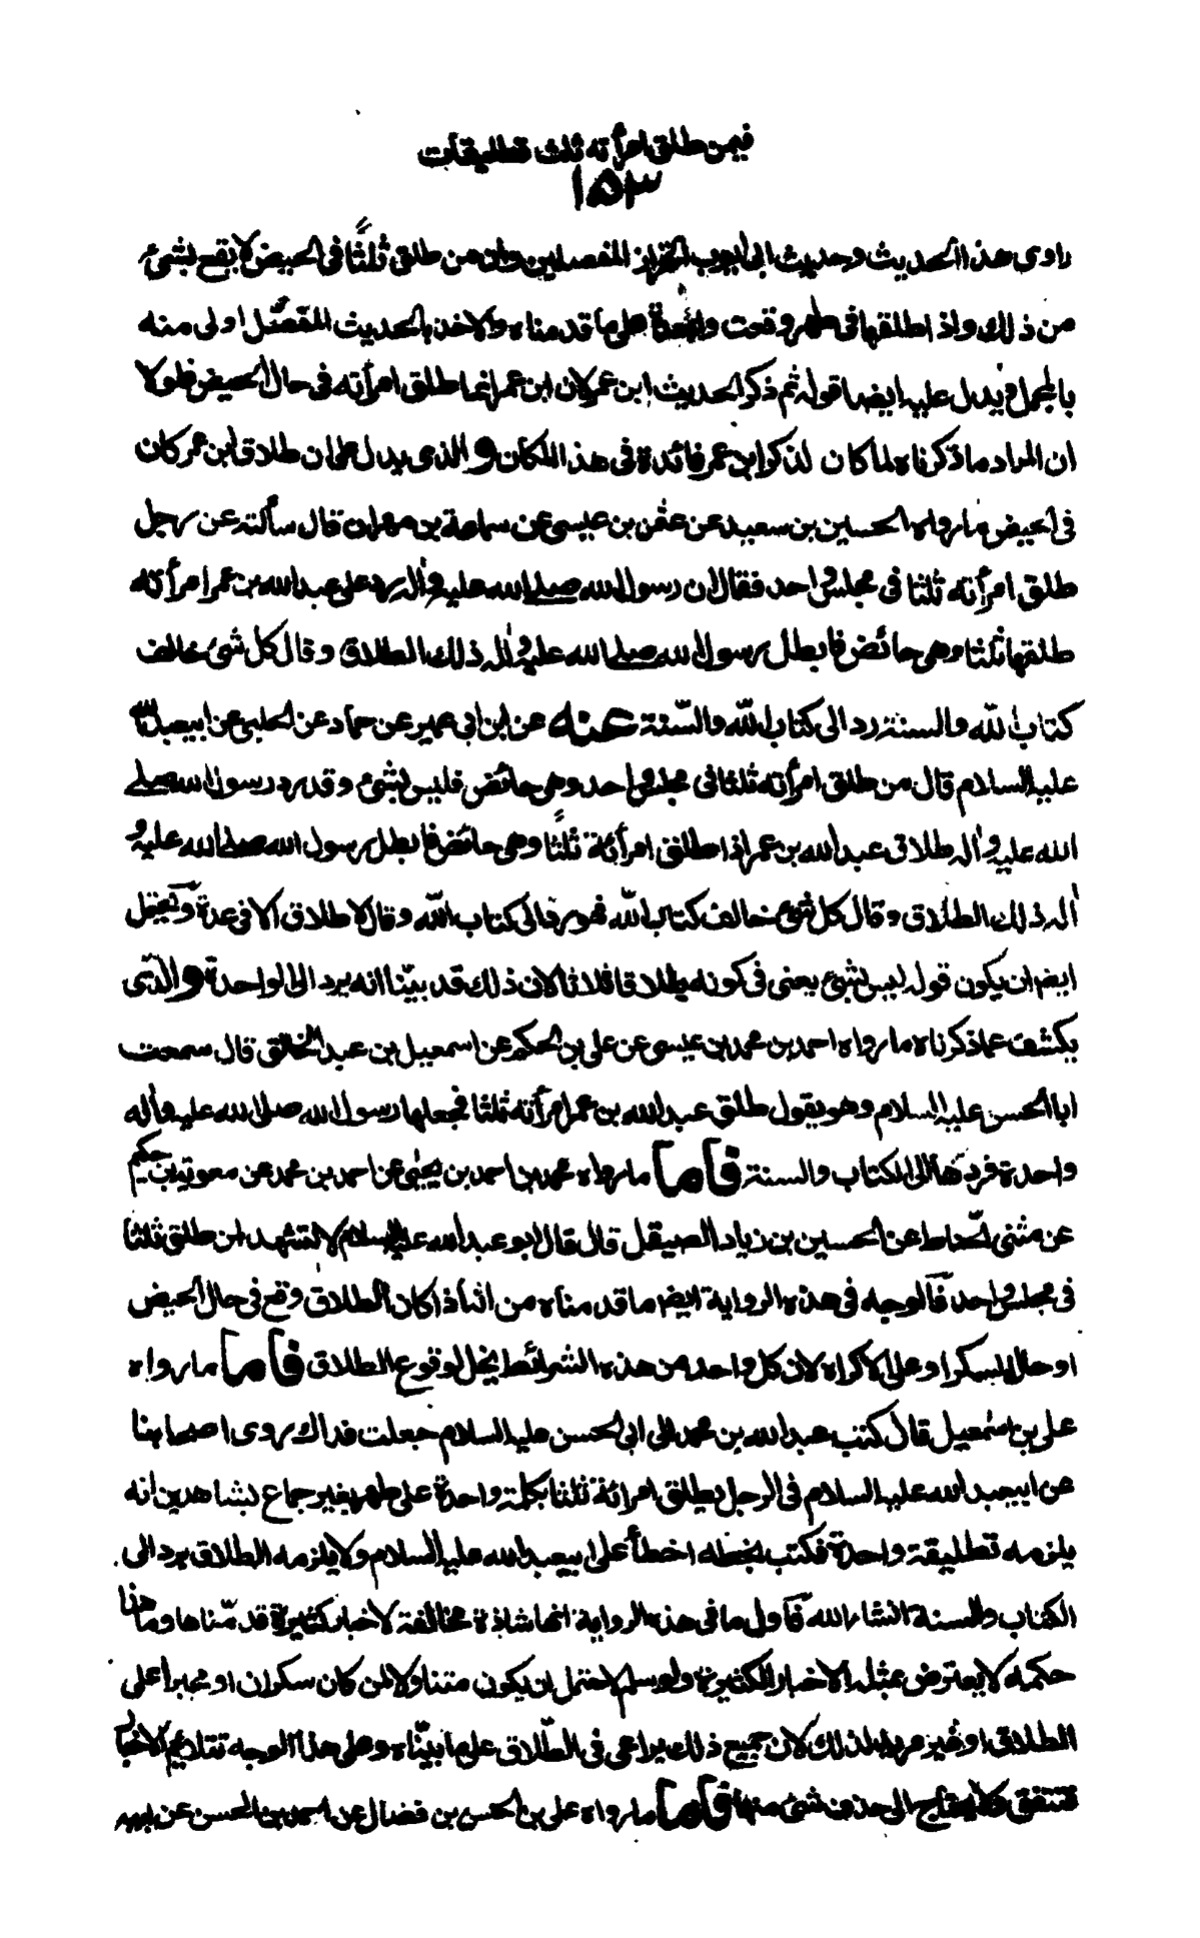 فيمن طلق امرأته ثلث تطليقات
١٥٣
راوى هذا الحديث وحديث ابى ايوب الخزاز المفصلين وان من طلق ثلثًا فى الحيض لا يقع بشئ
من ذلك واذ اطلقها فى طهر وقعت واحدة على ما قدمناه والاخذ بالحديث المفصّل اولى منه
بالمجمل ويدل عليه ايضا قوله ثم ذكر الحديث ابن عمر لان ابن عمر انما طلق امرأته فى حال الحيض فلولا
ان المراد ما ذكرناه لما كان لذكر ابن عمر فائدة فى هذا المكان والذى يدل على ان طلاق ابن عمر كان
فى الحيض ما رواه الحسين بن سعيد عن عثمن بن عيسى عن سماعة بن مهران قال سألته عن رجل
طلق امرأته ثلثا فى مجلس واحد فقال ان رسول الله صلى الله عليه واله رد على عبدالله بن عمر امرأته
طلقها ثلثا وهى حائض فابطل رسول الله صلى الله عليه واله ذلك الطلاق وقال كل شئ خالف
كتاب الله والسنة رد الى كتاب الله والسّنة عنه عن ابن ابى عمير عن حماد عن الحلبى عن ابيعبدالله
عليه السلام قال من طلق امرأته ثلثا فى مجلس واحد وهى حائض فليس بشئ وقد رد رسول الله صلى
الله عليه واله طلاق عبدالله بن عمر اذا طلق امرأته ثلثًا وهى حائض فابطل رسول الله صلى الله عليه و
اله ذلك الطلاق وقال كل شئ خالف كتاب الله فهو رد الى كتاب الله وقال لا طلاق الا فى عدة ويحتمل
ايضا ان يكون قوله ليس بشئ يعنى فى كونه طلاقا ثلاثا لان ذلك قد بيّنا انه يرد الى الواحدة والذى
يكشف عما ذكرناه ما رواه احمد بن محمد بن عيسى عن على بن الحكم عن اسمعيل بن عبد الخالق قال سمعت
ابا الحسن عليه السلام وهو يقول طلق عبدالله بن عمر امرأته ثلثا فجعلها رسول الله صلى الله عليه واله
واحدة فردها الى الكتاب والسنة فاما ما رواه محمد بن احمد بن يحيى عن احمد بن محمد عن معوية بن حكيم
عن مثنى الحناط عن الحسين بن زياد الصيقل قال قال ابو عبدالله عليه السلام لا تشهد لمن طلق ثلثا
فى مجلس واحد فالوجه فى هذه الرواية ايضا ما قدمناه من انه اذا كان الطلاق وقع فى حال الحيض
او حال السكر او على الاكراه لان كل واحد من هذه الشرائط يخل لوقوع الطلاق فاما ما رواه
على بن اسمعيل قال كتب عبدالله بن محمد الى ابى الحسن عليه السلام جعلت فداك روى اصحابنا
عن ابيعبدالله عليه السلام فى الرجل يطلق امرأته ثلثا بكلمة واحدة على طهر بغير جماع بشاهدين انه
يلزمه تطليقة واحدة فكتب بخطه اخطأ على ابيعبدالله عليه السلام ولا يلزمه الطلاق يرد الى
الكتاب والسنة انشاء الله فاول ما فى هذه الرواية انها شاذة مخالفة لاخبار كثيرة قد مّناها وما هذا
حكمه لا يعترض بمثله الاخبار الكثيرة ولو سلم لاحتمل ان يكون متناولا لمن كان سكران او مجبرا على
الطلاق او غير مريد لذلك لان جميع ذلك يراعى فى الطّلاق على ما بيّناه وعلى هذا الوجه تتلائم الاخبار
فتتفق ولا يحتاج الى حذف شئ منها فاما ما رواه على بن الحسن بن فضال عن احمد بن الحسن عن ابيه